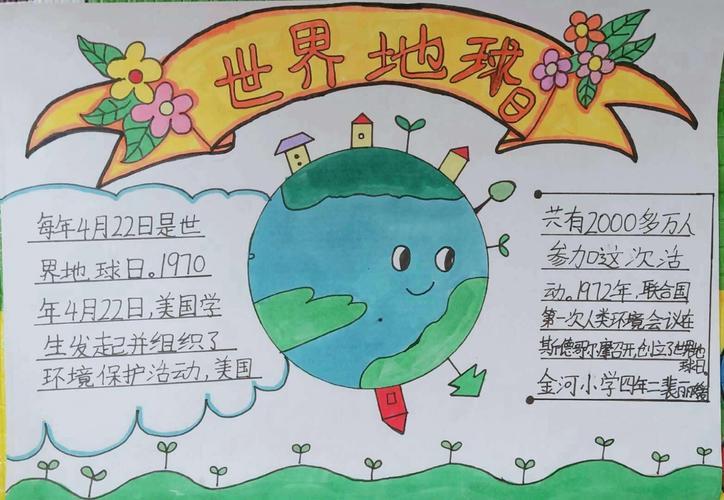 世界地球日
每年4月22日是世
界地球日。1970
年4月22日,美国学
生发起并组织了
环境保护活动,美国
共有2000多万人
参加这次活
动。1972年,联合国
第一次人类环境会议在
斯德哥尔摩召开,创立了世界地
球日。
金河小学四年二裴丽